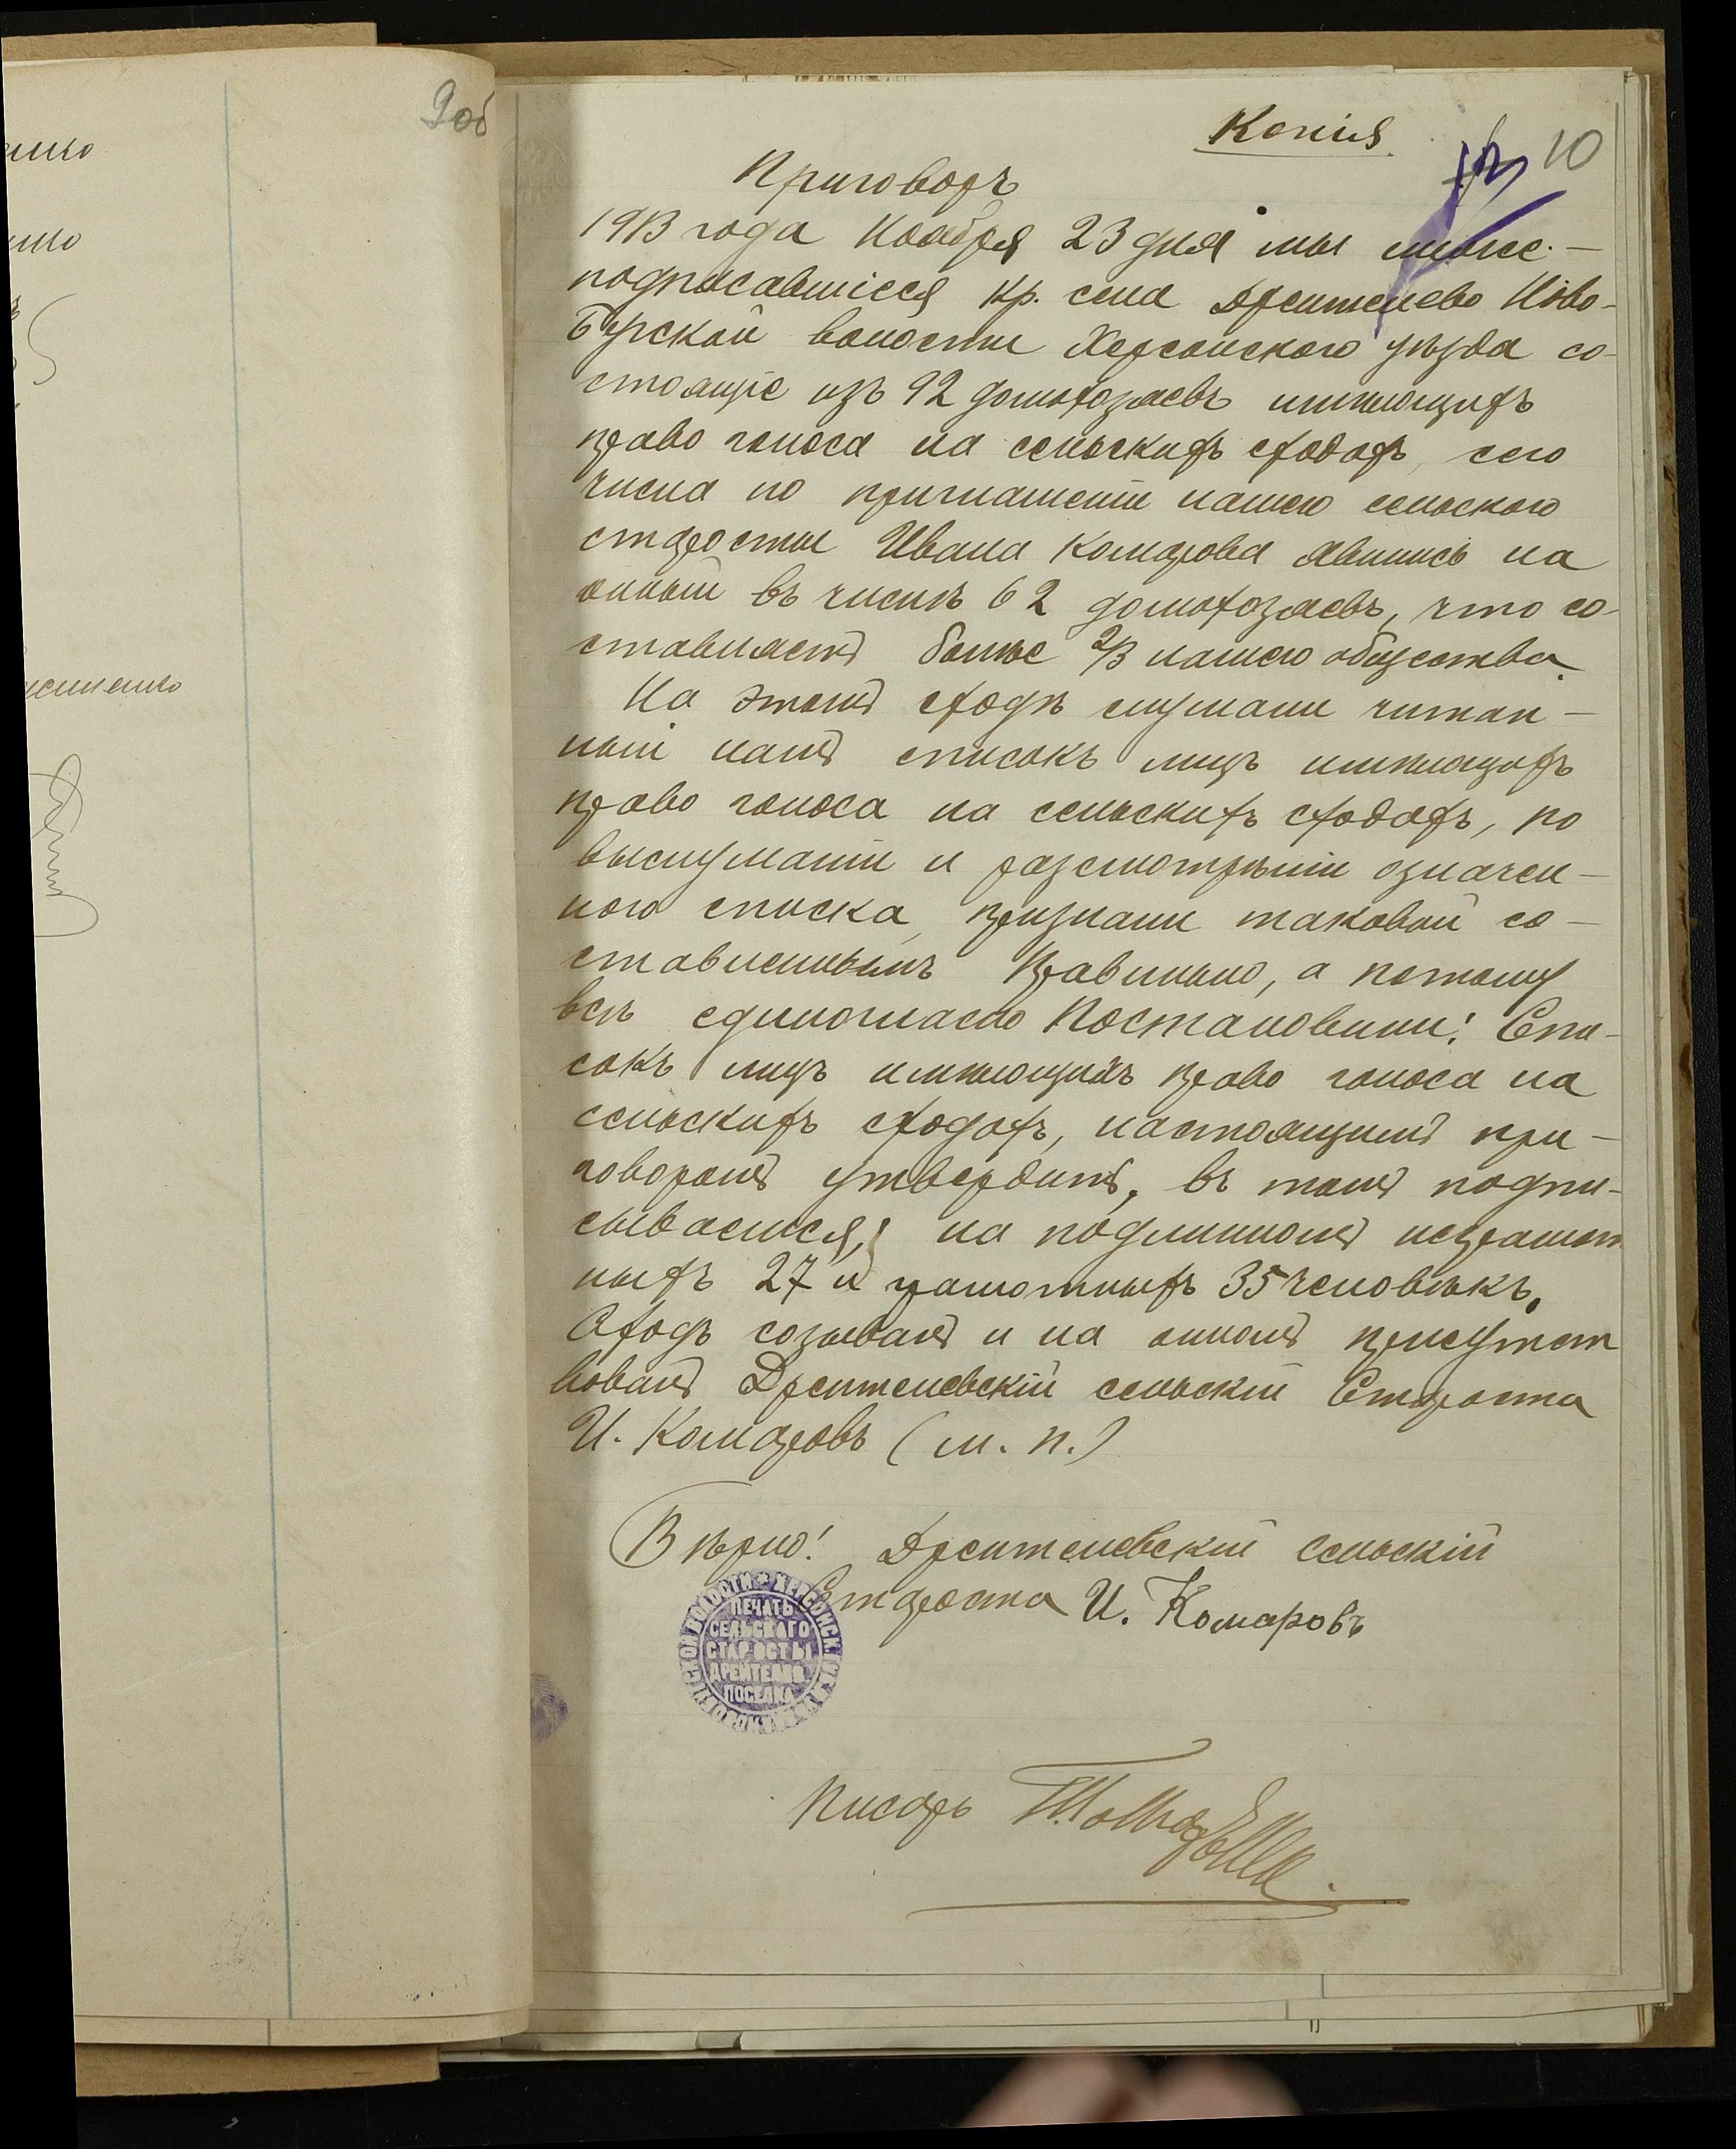 9об
Копія
13 10
Приговоръ
1913 года Ноября 23 дня мы ниже-
подписавшіеся кр. села Дрейтелево Ново-
Бугской волости Херсонского уѣзда со-
стоящіе изъ 92 домохозяевъ имѣющихъ
право голоса на сельскихъ сходахъ, сего
числа по приглашенію нашего сельского
старосты Ивана Комарова явились на
оный въ числѣ 62 домохозяевъ, что со-
ставляетъ болѣе 2/3 нашего общества.
На этомъ сходѣ слушали читан-
ный намъ списокъ лицъ имѣющихъ
право голоса на сельскихъ сходахъ, по
выслушаніи и разсмотрѣніи означен-
ного списка, признали таковой со-
ставленнымъ правильно, а потому
всѣ единогласно Постановили: Спи-
сокъ лицъ имѣющихъ право голоса на
сельскихъ сходахъ, настоящимъ при-
говоромъ утвердить, въ томъ подпи-
сываемся, на подлинномъ неграмот
ныхъ 27 и грамотныхъ 35 человѣкъ.
Сходъ созывалъ и на ономъ присутст
вовалъ Дрейтелевскій сельскій Староста
И. Комаровъ (м. п.)
Вѣрно! Дрейтелевскій сельскій
Староста И. Комаровъ
ПЕЧАТЬ
СЕЛЬСКАГО
СТАРОСТЫ
ДРЕЙТЕЛЕВ.
ПОСЕЛКА
Писарь